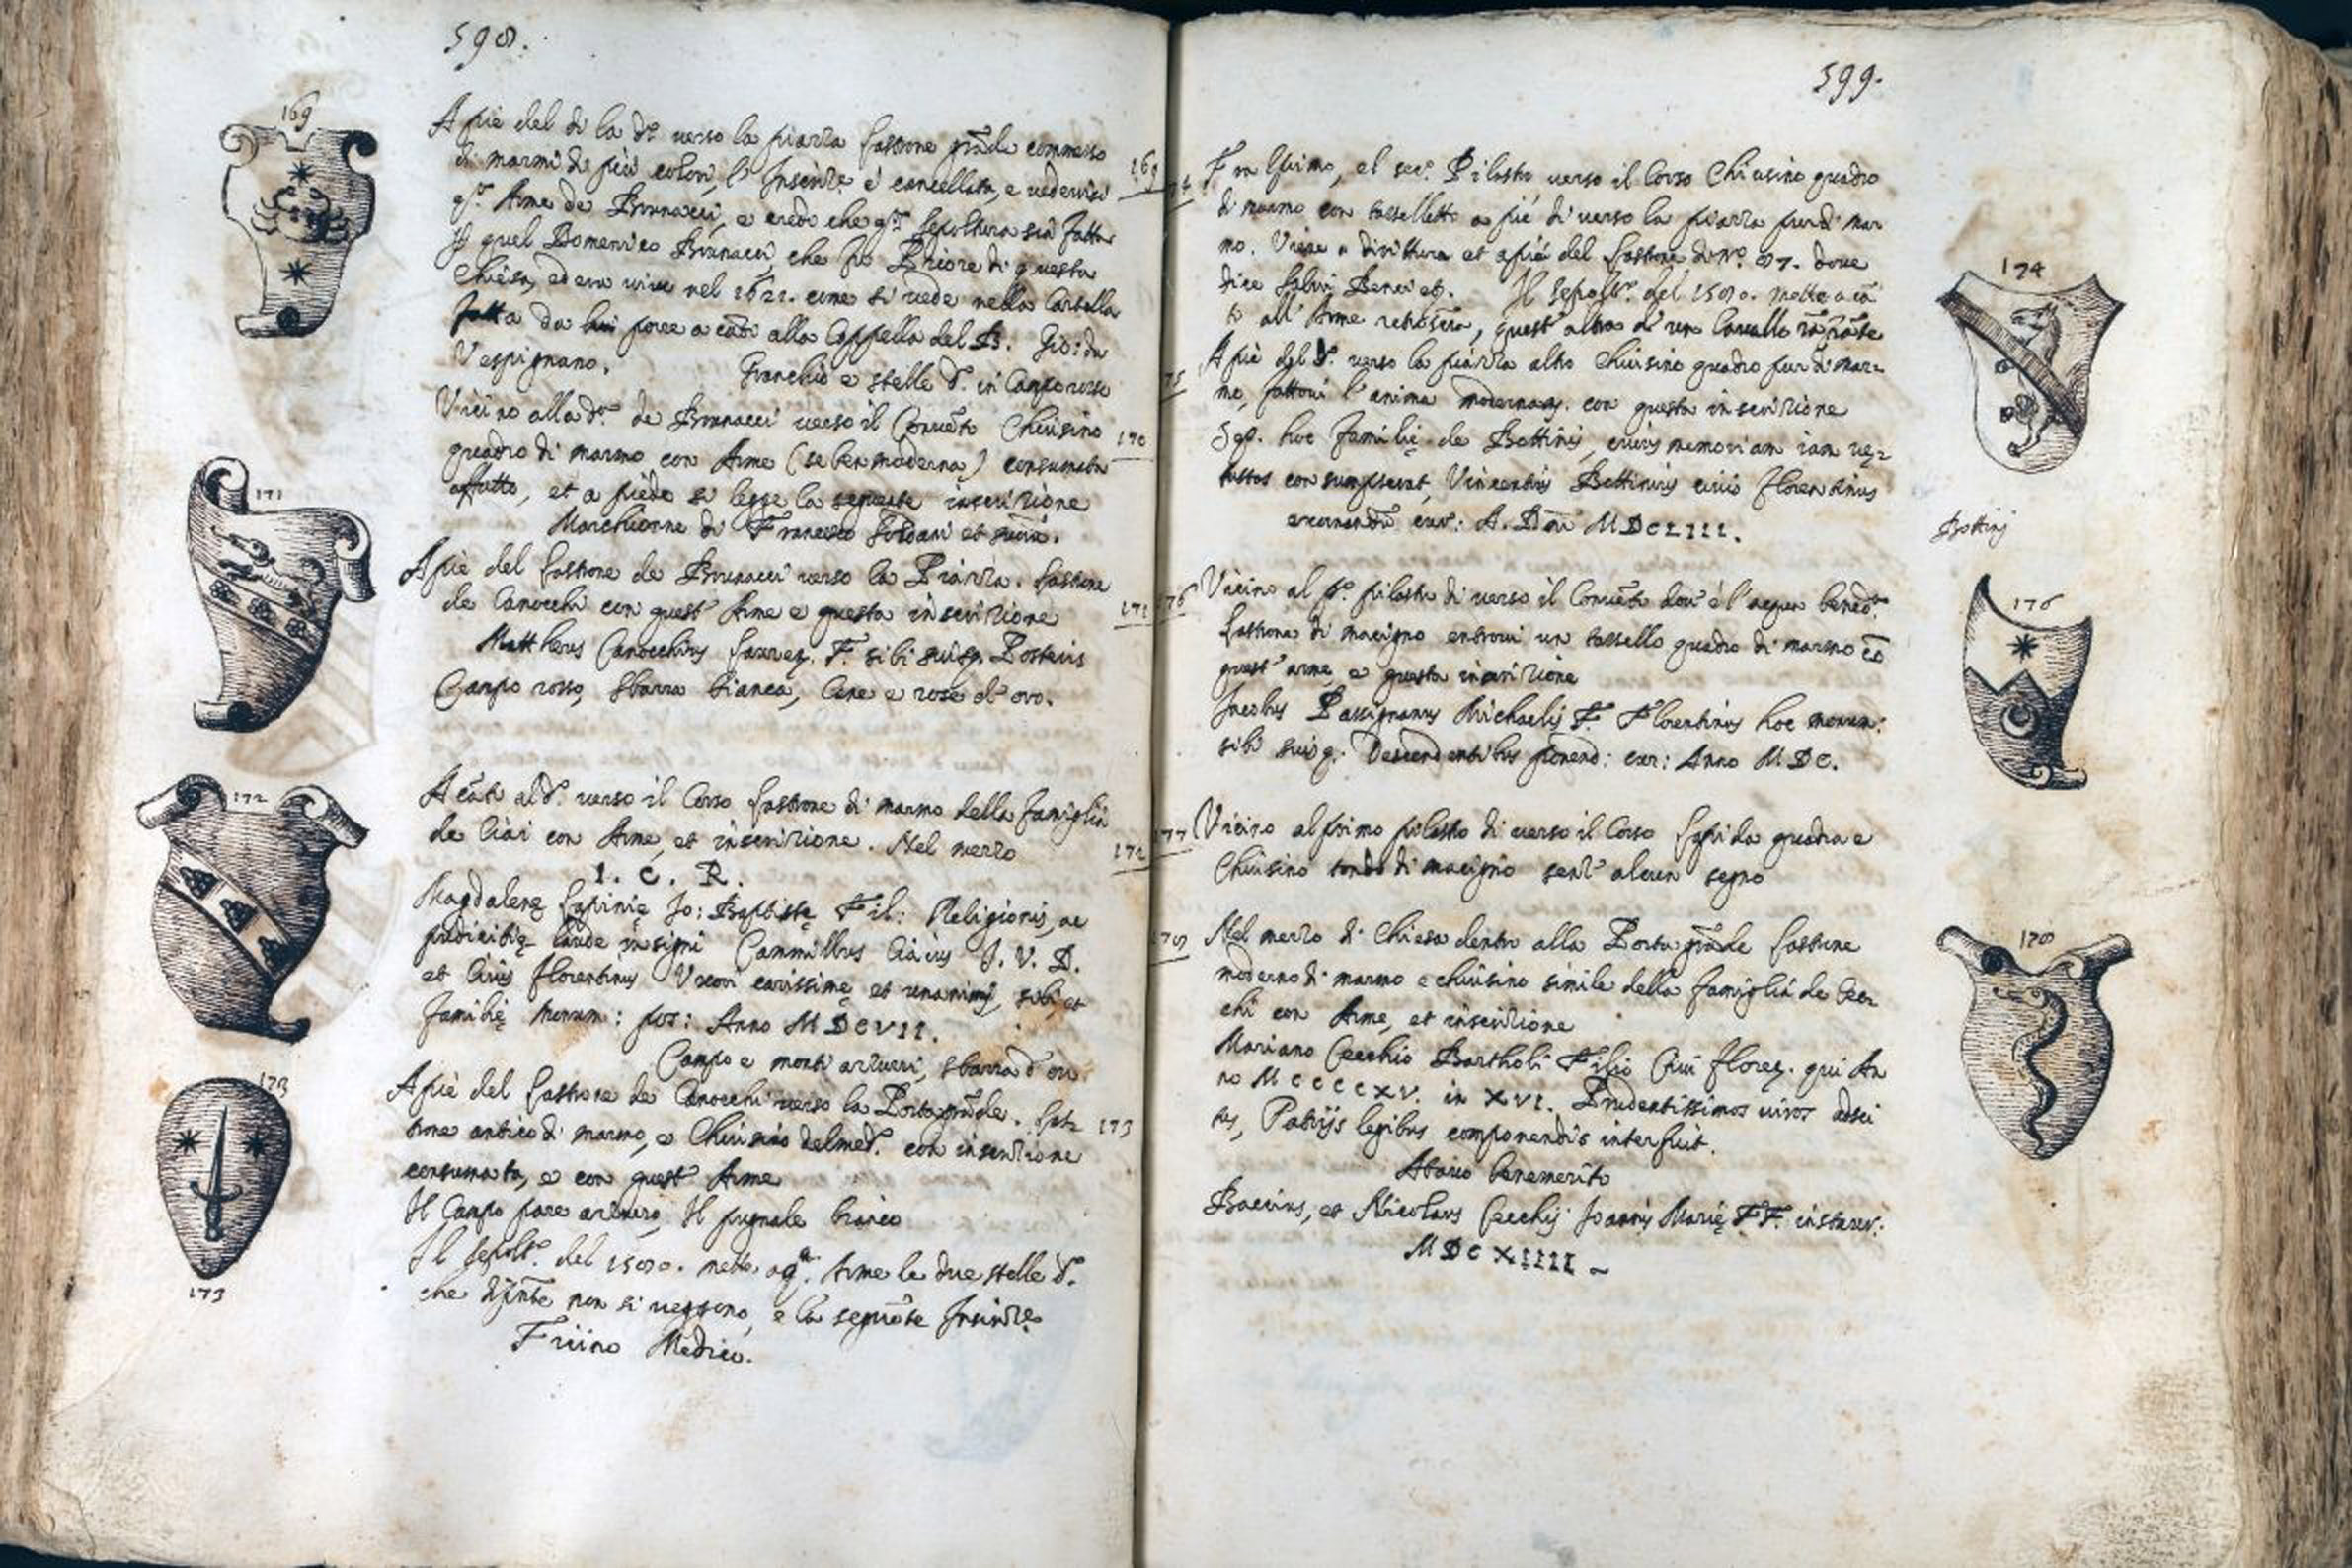 598.
169
A piè del di là d.º verso la piazza lastrone grãde commesso
di marmi di più colori, l'Inscriz.e è cancellata, e vedervisi
q.ta Arme de Brunacci, e credo che q.ta sepoltura sia fatta
quel Domenico Brunacci, che fu Priore di questa
Chiesa, ed era vivo nel 1621. come si vede nella Cartella
fatta da lui porre a cãto alla Cappella del B. Gio: da
Vespignano. Granchio e stelle d. in Campo rosso
169
Vicino alla d.ª de Brunacci verso il Convẽto Chiusino
quadro di marmo con Arme (se ben moderna) consumata
affatto, et a piede si legge la seguente inscrizione
Marchionne di Francesco Soldani et suorũ.
170
171
A piè del lastrone de Brunacci verso la Piazza. lastrone
de Canocchi con quest'Arme e questa inscrizione
Mattheus Canocchius Laurẽ. F. sibi suisq. Posteris
Campo rosso, sbarra bianca, Cane e rose d'oro.
171
172
A cãto al d. verso il Corso lastrone di marmo della famiglia
de Ciai con Arme, et inscrizione. Nel mezzo
I. C. R.
Magdalenę Lapinię Jo: Baptistę Fil: Religionis, ac
pudicitię laude insigni Cammillus Ciaius J. V. D.
et Civis florentinus Uxori carissimę et unanimi, sibi, et
Familię monum: pos: Anno MDCVII.
Campo e monti azzurri, sbarra d'oro
172
173
A piè del lastrone de Canocchi verso la Porta grãde. las
trone antico di marmo, e Chiusino del med. con inscrizione
consumata, e con quest'Arme
Il Campo pare azzurro, Il pugnale bianco
Il Sepolt.º del 1580. mette a q.ta Arme le due stelle d.
che non si veggono, e la seguẽte Inscriz.e
Friino Medico.
173
173
599.
174
Fra l'primo, el sec.º Pilastro verso il Corso Chiusino quadro
di marmo con tasselletto a piè di verso la piazza pur di mar
mo. Viene a dirittura et a piè del lastrone di N.º 87. dove
dice Salvi Benci et. Il Sepolt.º del 1580. mette a cã
to all'Arme retroscr.ª, quest'altra d'un Cavallo rãpãte
A piè del d. verso la piazza altro Chiusino quadro pur di mar
mo, fattovi l'anima moderna. con questa inscrizione
Sep. hoc Familię de Bettinis, cuius memoriam iam ve
tustas consumpserat, Vincentius Bettinius civis florentinus
exornandũ cur: A. Dñi MDCLIII.
175
Bettini
176
Vicino al p.º pilastro di verso il Convẽto dov'è l'acqua bened.ta
lastrone di macigno entrovi un tassello quadro di marmo cõ
quest'arme e questa inscrizione
Jacobus Passignanus Michaelis F. Florentinus hoc monum:
sibi suisq. Descendentibus ponend: cur: Anno MDC.
176
177
Vicino al primo pilastro di verso il Corso lapida quadra e
Chiusino tondo di macigno senz'alcun segno
178
Nel mezzo di Chiesa dentro alla Porta grãde lastrone
moderno di marmo e chiusino simile della famiglia de Cec
chi con Arme, et inscrizione
Mariano Cecchio Bartholi Filio Civi florẽ. qui An
no MCCCCXV. in XVI. Prudentissimos viros adsci
tus, Patrijs legibus componendis interfuit.
Atavo benemerito
Baccius, et Nicolaus Cecchij Joannis Marię FF. instaur:
MDCXIIII
178